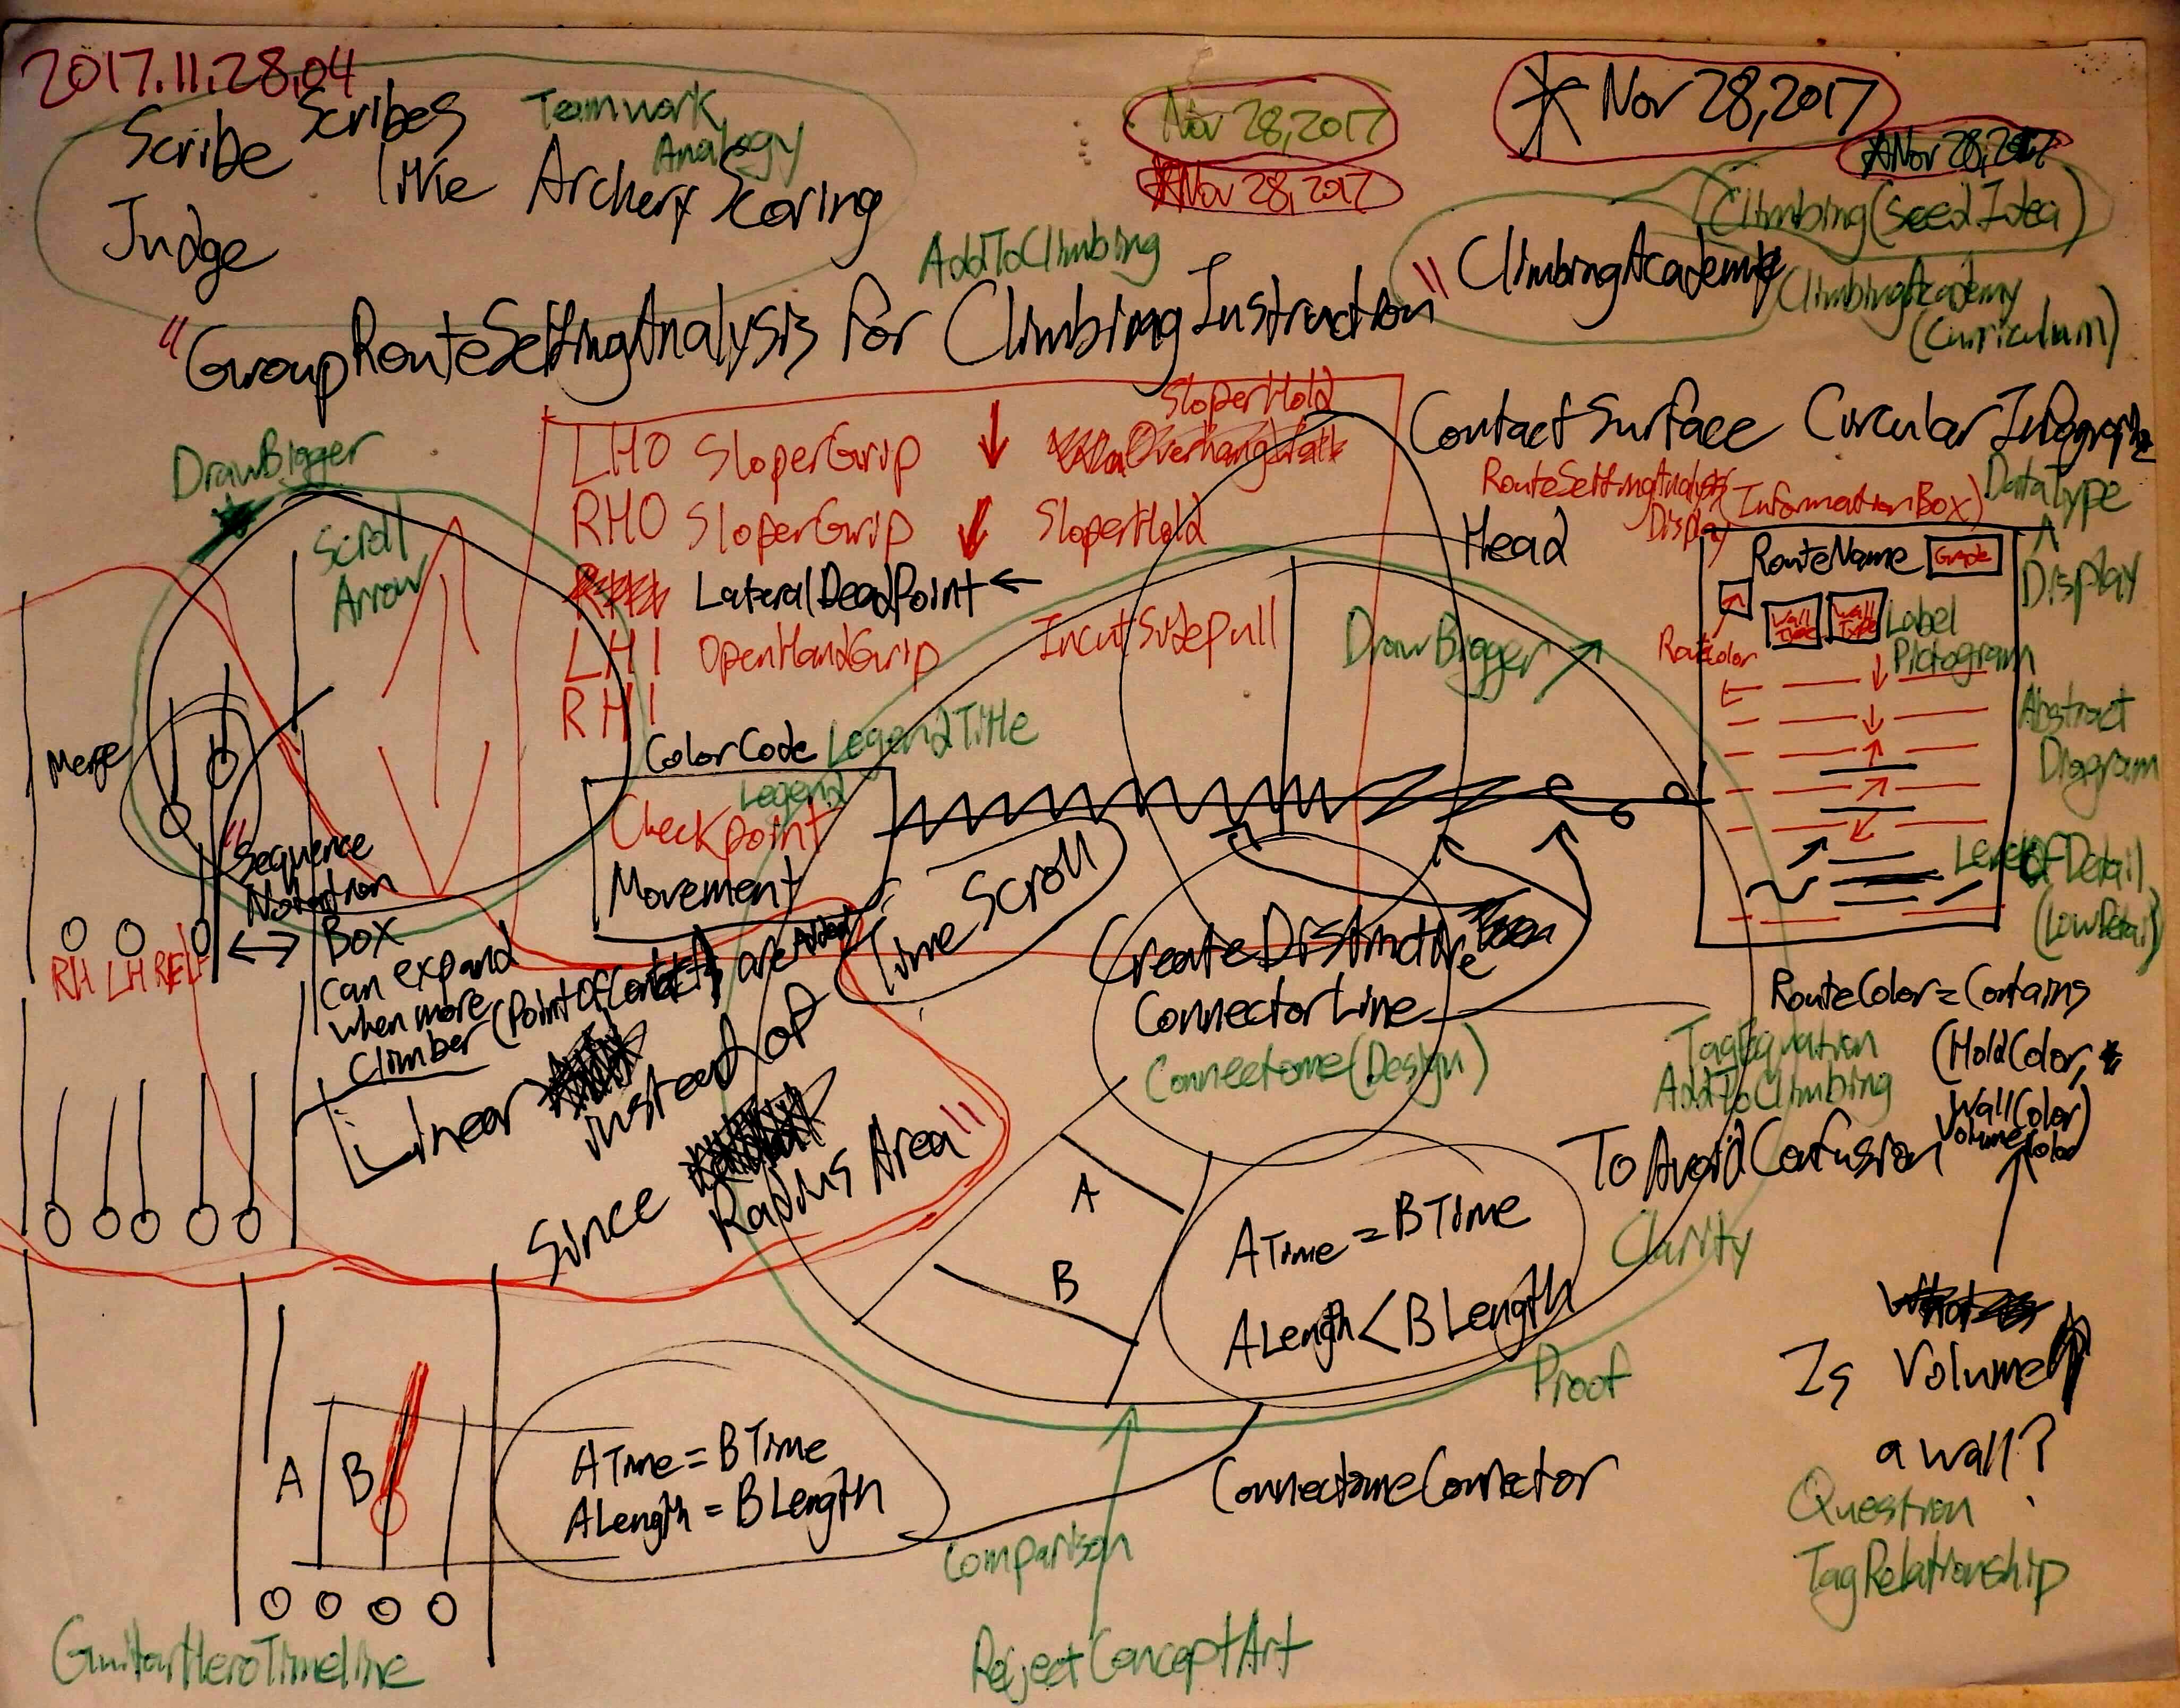 2017.11.28.04
Scribe Scribes
Teamwork
Analogy
like Archery Scoring
Judge
Nov 28, 2017
*Nov 28, 2017
* Nov 28, 2017
*Nov 28, 2017
Climbing(SeedIdea)
AddToClimbing
ClimbingAcademy
ClimbingAcademy
(Curriculum)
"GroupRouteSettingAnalysis for ClimbingInstruction"
DrawBigger
Scroll
Arrow
LHO SloperGrip ↓ SloperHold
RHO SloperGrip ↓ SloperHold
LateralDeadPoint ←
LHI OpenHandGrip IncutSidepull
RHI
ContactSurface Circular Infographic
RouteSettingAnalysis
Display
(InformationBox)
DataType
Display
Head
RouteName Grade
Wall Type
Wall Type
Label
Pictogram
RouteColor
DrawBigger
Abstract
Diagram
LevelOfDetail
(LowDetail)
Merge
ColorCode LegendTitle
Legend
Checkpoint
Movement
"Sequence
Notation
Box
can expand
when more
Climber (PointOfContact) are Added
RH LH RF LF
Time Scroll
Linear
instead of
Since
Radius Area"
CreateDistinctive
ConnectorLine
Connectome(Design)
RouteColor = Contains
(HoldColor,
WallColor)
VolumeColor
TagEquation
AddToClimbing
To Avoid Confusion
Clarity
A
B
A Time = B Time
A Length < B Length
Proof
Is Volume
a wall?
Question
TagRelationship
A B
A Time = B Time
A Length = B Length
ConnectomeConnector
Comparison
GuitarHeroTimeline
RejectConceptArt